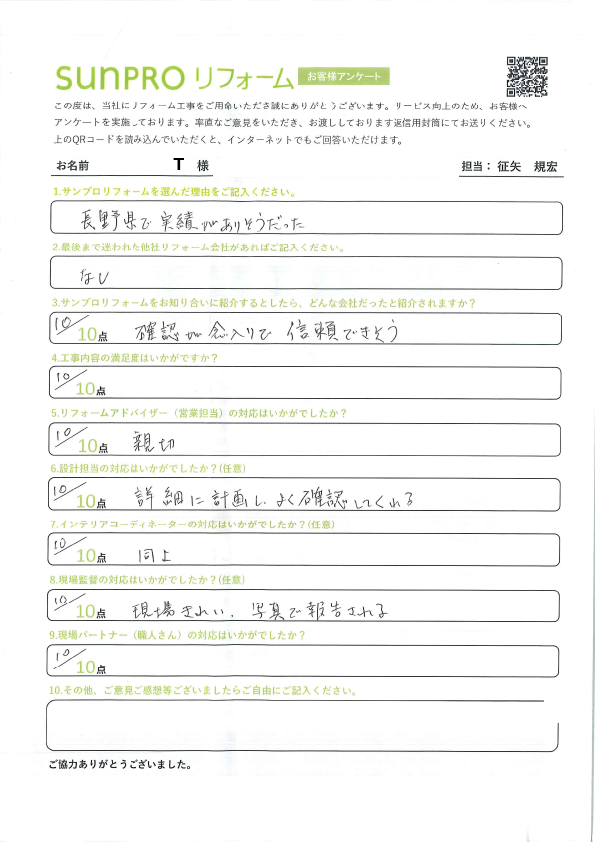 SUNPRO リフォーム お客様アンケート
この度は、当社にリフォーム工事をご用命いただき誠にありがとうございます。サービス向上のため、お客様へ
アンケートを実施しております。率直なご意見をいただき、お渡ししております返信用封筒にてお送りください。
上のQRコードを読み込んでいただくと、インターネットでもご回答いただけます。
お名前 T 様 担当：征矢 規宏
1.サンプロリフォームを選んだ理由をご記入ください。
長野県で実績がありそうだった
2.最後まで迷われた他社リフォーム会社があればご記入ください。
なし
3.サンプロリフォームをお知り合いに紹介するとしたら、どんな会社だったと紹介されますか？
10/10点 確認が念入りで 信頼できそう
4.工事内容の満足度はいかがですか？
10/10点
5.リフォームアドバイザー（営業担当）の対応はいかがでしたか？
10/10点 親切
6.設計担当の対応はいかがでしたか？(任意)
10/10点 詳細に計画し、よく確認してくれる
7.インテリアコーディネーターの対応はいかがでしたか？(任意)
10/10点 同上
8.現場監督の対応はいかがでしたか？(任意)
10/10点 現場きれい、写真で報告される
9.現場パートナー（職人さん）の対応はいかがでしたか？
10/10点
10.その他、ご意見ご感想等ございましたらご自由にご記入ください。
ご協力ありがとうございました。